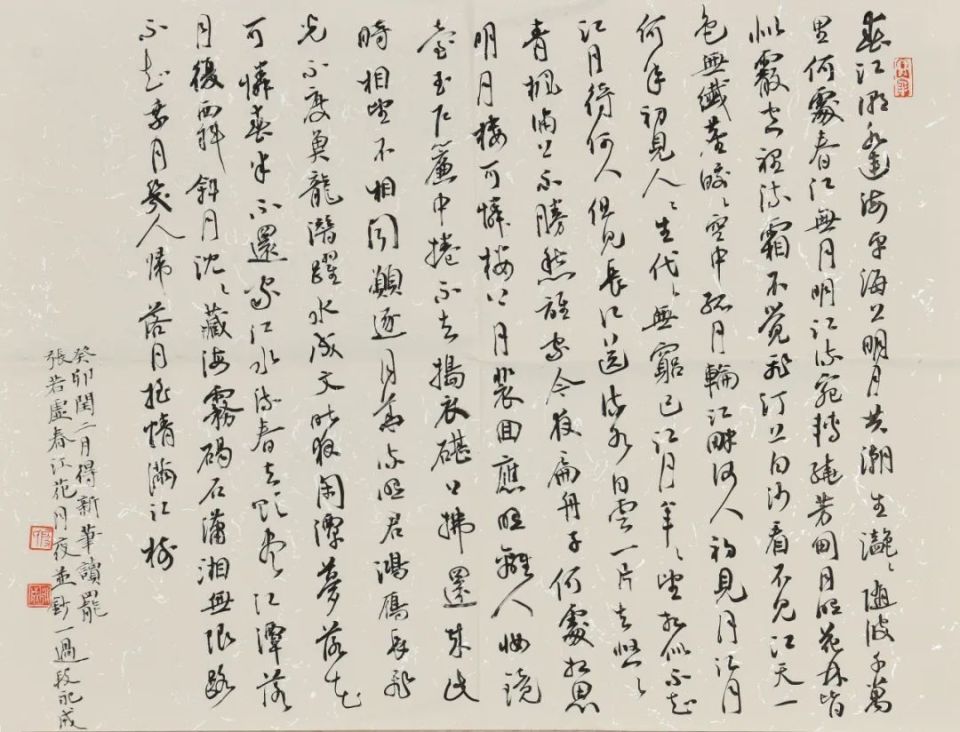 春江潮水連海平海上明月共潮生灩〻隨波千萬
里何處春江無月明江流宛轉繞芳甸月照花林皆
似霰空裡流霜不覺飛汀上白沙看不見江天一
色無纖塵皎〻空中孤月輪江畔何人初見月江月
何年初見人〻生代〻無窮已江月年〻望相似不知
江月待何人但見長江送流水白雲一片去悠〻
青楓浦上不勝愁誰家今夜扁舟子何處相思
明月樓可憐樓上月裴回應照離人妝鏡
臺玉戶簾中捲不去擣衣碪上拂還來此
時相望不相聞願逐月華流照君鴻雁長飛
光不度魚龍潛躍水成文昨夜閑潭夢落花
可憐春半不還家江水流春去欲盡江潭落
月復西斜斜月沈〻藏海霧碣石瀟湘無限路
不知乘月幾人歸落月搖情滿江樹
癸卯閏二月得新華讀罷
張若虛春江花月夜並鈔一過段永成